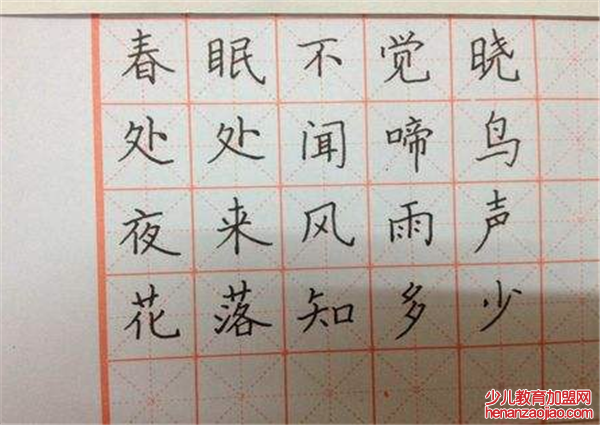 春眠不觉晓
处处闻啼鸟
夜来风雨声
花落知多少
少儿教育加盟网
henanzaojiao.com